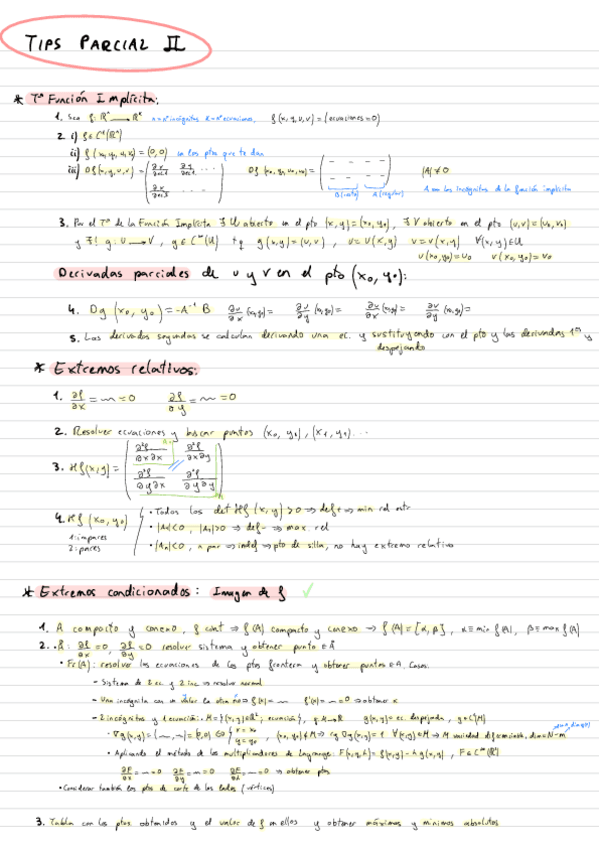 TIPS PARCIAL II
* Tª Función Implícita:
1. Sea f: ℝⁿ → ℝᵏ n = nº incógnitas k = nº ecuaciones, f(x, y, u, v) = (ecuaciones = 0)
2. i) f ∈ C¹(ℝⁿ)
ii) f(x₀, y₀, u₀, v₀) = (0,0) en los ptos que te dan
iii) Df(x, y, u, v) = Df(x₀, y₀, u₀, v₀) = |A| ≠ 0
B (resto) A (regular) A son las incógnitas de la función implícita
3. Por el Tª de la Función Implícita ∃ U abierto en el pto (x, y) = (x₀, y₀), ∃ V abierto en el pto (u, v) = (u₀, v₀)
y ∃! g: U → V, g ∈ C^∞(U) tq g(x, y) = (u, v), u = u(x, y) v = v(x, y) ∀(x, y) ∈ U
u(x₀, y₀) = u₀ v(x₀, y₀) = v₀
Derivadas parciales de u y v en el pto (x₀, y₀):
4. Dg(x₀, y₀) = -A⁻¹ B ∂u/∂x (x₀, y₀) = ∂u/∂y (x₀, y₀) = ∂v/∂x (x₀, y₀) = ∂v/∂y (x₀, y₀) =
5. Las derivadas segundas se calculan derivando una ec. y sustituyendo con el pto y las derivadas 1ªs y
despejando
* Extremos relativos:
1. ∂f/∂x = ~ = 0 ∂f/∂y = ~ = 0
2. Resolver ecuaciones y buscar puntos (x₀, y₀), (x₁, y₁)...
3. Hf(x, y) = ( ∂²f/∂x∂x ∂²f/∂x∂y
∂²f/∂y∂x ∂²f/∂y∂y )
4. Hf(x₀, y₀)
1: impares
2: pares
• Todos los det Hf(x, y) > 0 ⇒ def + ⇒ min rel estr
• |A₁| < 0, |A₂| > 0 ⇒ def - ⇒ max. rel
• |Aₙ| < 0, n par ⇒ indef ⇒ pto de silla, no hay extremo relativo
* Extremos condicionados: Imagen de f ✓
1. A compacto y conexo, f cont ⇒ f(A) compacto y conexo → f(A) = [α, β], α ≡ min f(A), β ≡ max f(A)
2. • Å: ∂f/∂x = 0, ∂f/∂y = 0 resolver sistema y obtener punto ∈ Å
• Fr(A): resolver las ecuaciones de los ptos frontera y obtener puntos ∈ A. Casos:
- Sistema de 2 ec. y 2 inc ⇒ resolver normal
- Una incógnita con un valor la otra no ⇒ f(x) = ~ f'(x) = ~ = 0 ⇒ obtener x
- 2 incógnitas y 1 ecuación: M = {(x, y) ∈ ℝ²; ecuación}, g: A → ℝ g(x, y) = ec. despejada, g ∈ C¹(M)
• ∇g(x, y) = (~, ~) = (0, 0) ⇔ x = x₀ y = y₀, (x₀, y₀) ∉ M ⇒ rg Dg(x, y) = 1 ∀(x, y) ∈ M ⇒ M variedad diferenciable, dim = N - m
• Aplicando el método de los multiplicadores de Lagrange: F(x, y, λ) = f(x, y) - λ g(x, y), F ∈ C^∞(ℝ³)
∂F/∂x = ~ = 0 ∂F/∂y = ~ = 0 ∂F/∂λ = ~ = 0 ⇒ obtener ptos
• Considerar también los ptos de corte de los lados (vértices)
3. Tabla con los ptos obtenidos y el valor de f en ellos y obtener máximos y mínimos absolutos